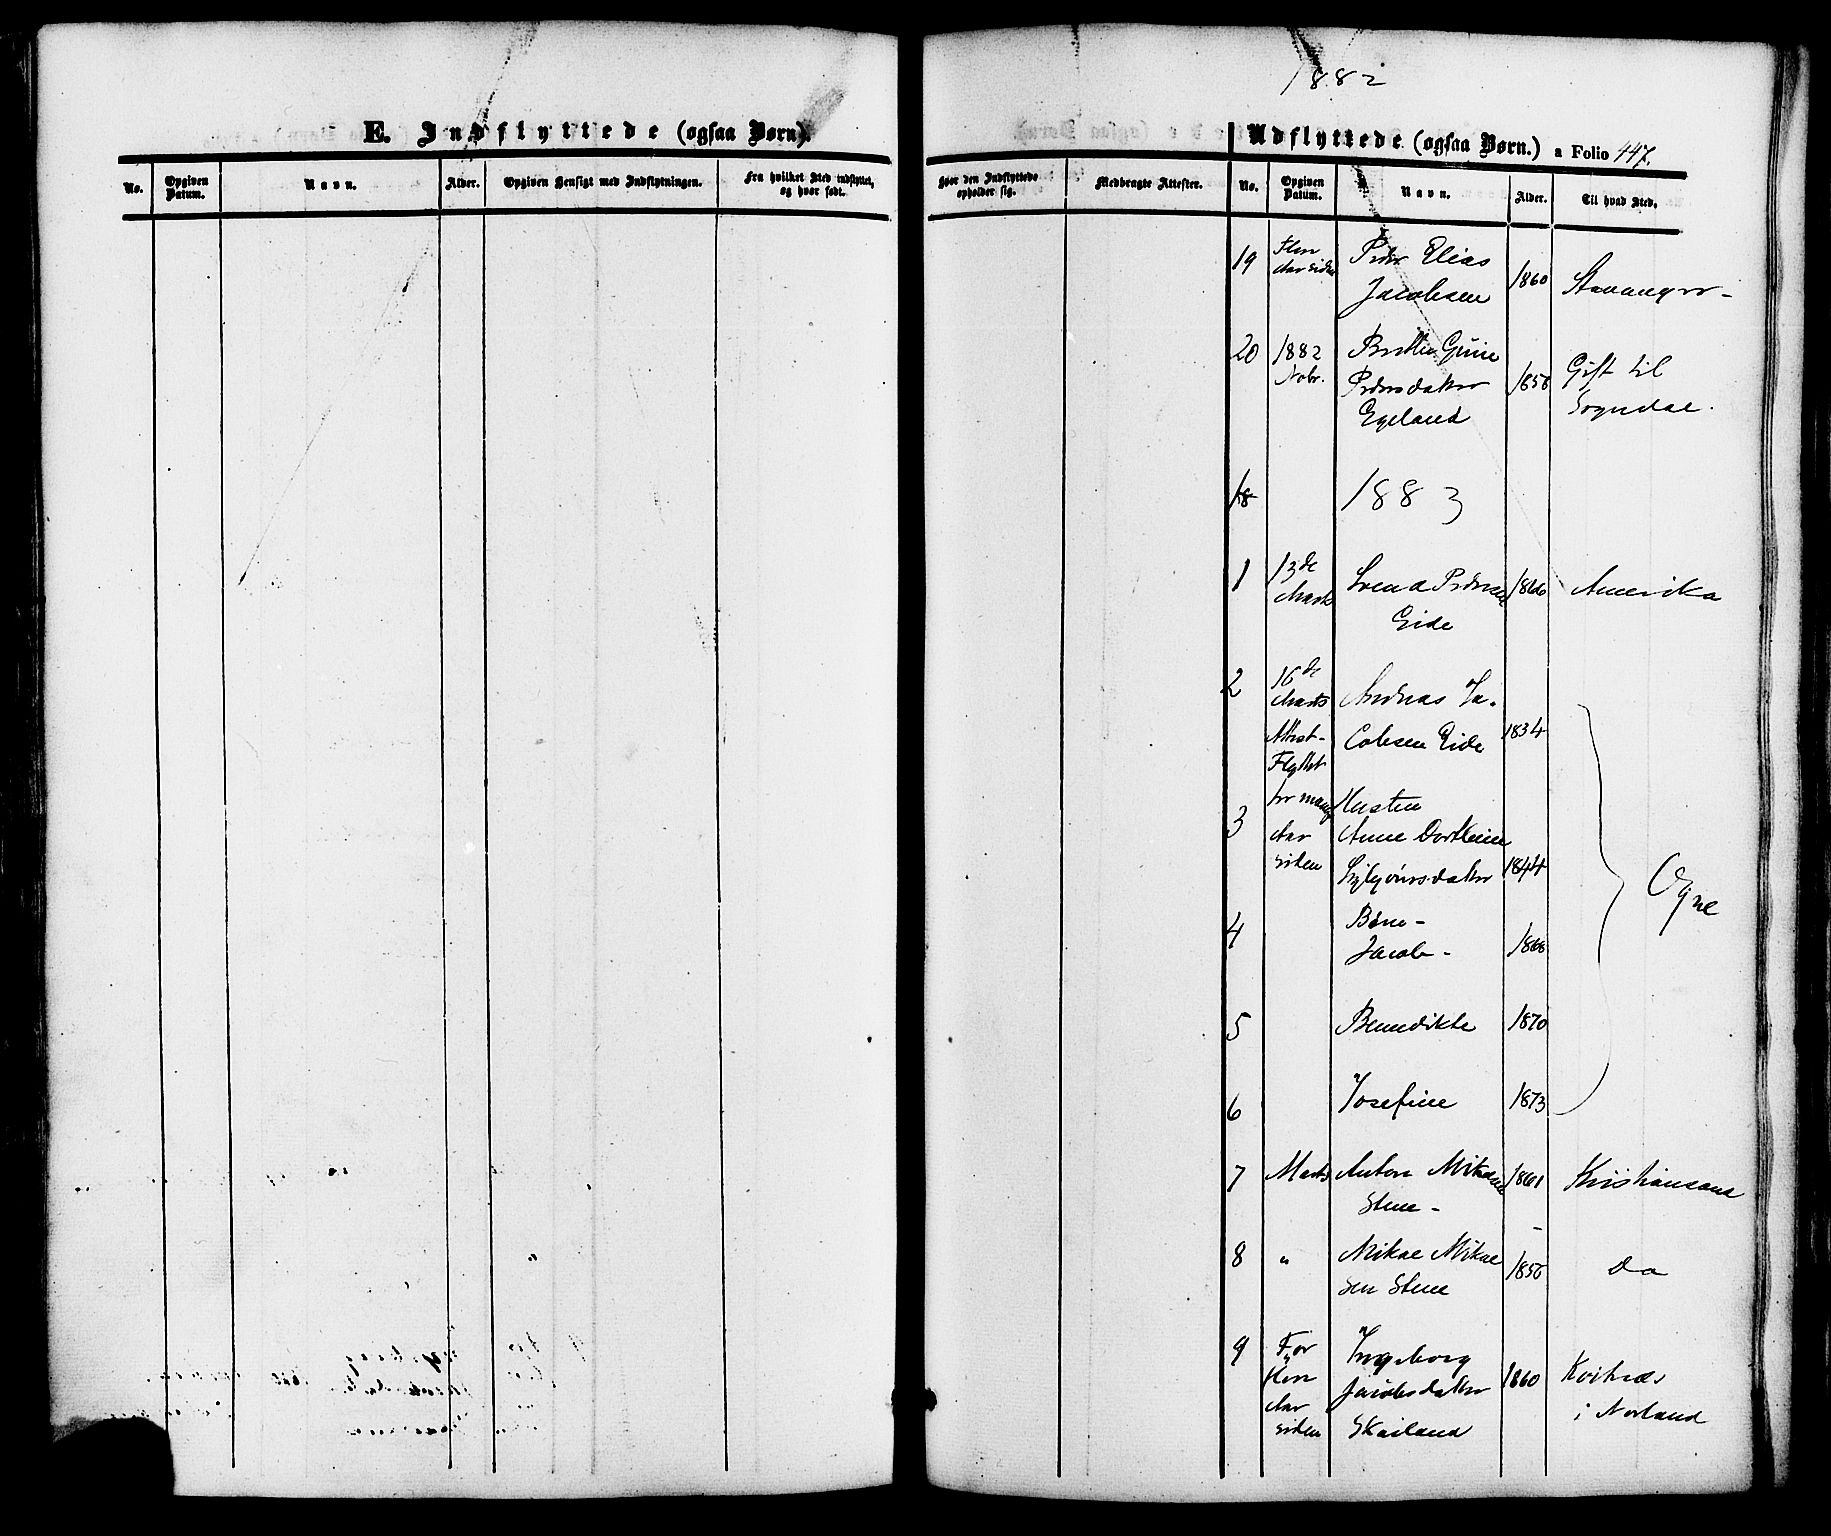 E. Indflyttede (ogsaa Børn).
No.
Opgiven Datum.
Navn.
Alder.
Opgiven Hensigt med Indflytningen.
Fra hvilket Sted indflyttet, og hvor født.
1882
Udflyttede (ogsaa Børn.) a Folio 447.
Hvor den Indflyttede opholder sig.
Medbragte Attester.
No.
Opgiven Datum.
Navn.
Alder.
Til hvad Sted.
19 Flere Aar siden Peder Elias Jacobsen 1860 Stavanger -
20 1882 Nobr. Pedersdatter Egeland 1858 Gift til Sogndal.
18 1883
1 13de Marts Svend Pedersen Eide 1860 Amerika
2 16de Marts Attest- Flyttet Andreas Ja- cobsen Eide 1834
3 for mange Aar siden Hustru Anne Dorthea 1844
Ogne
4 Børn - Jacob - 1868
5 Benedikte 1870
6 Josefine 1873
7 Marts Anton Mikalsen Stene - 1861 Kristiansand
8 " Mikal Mikal sen Stene 1858 do
9 For flere Aar siden Ingeborg Jacobsdatter Skailand 1860 i Norland